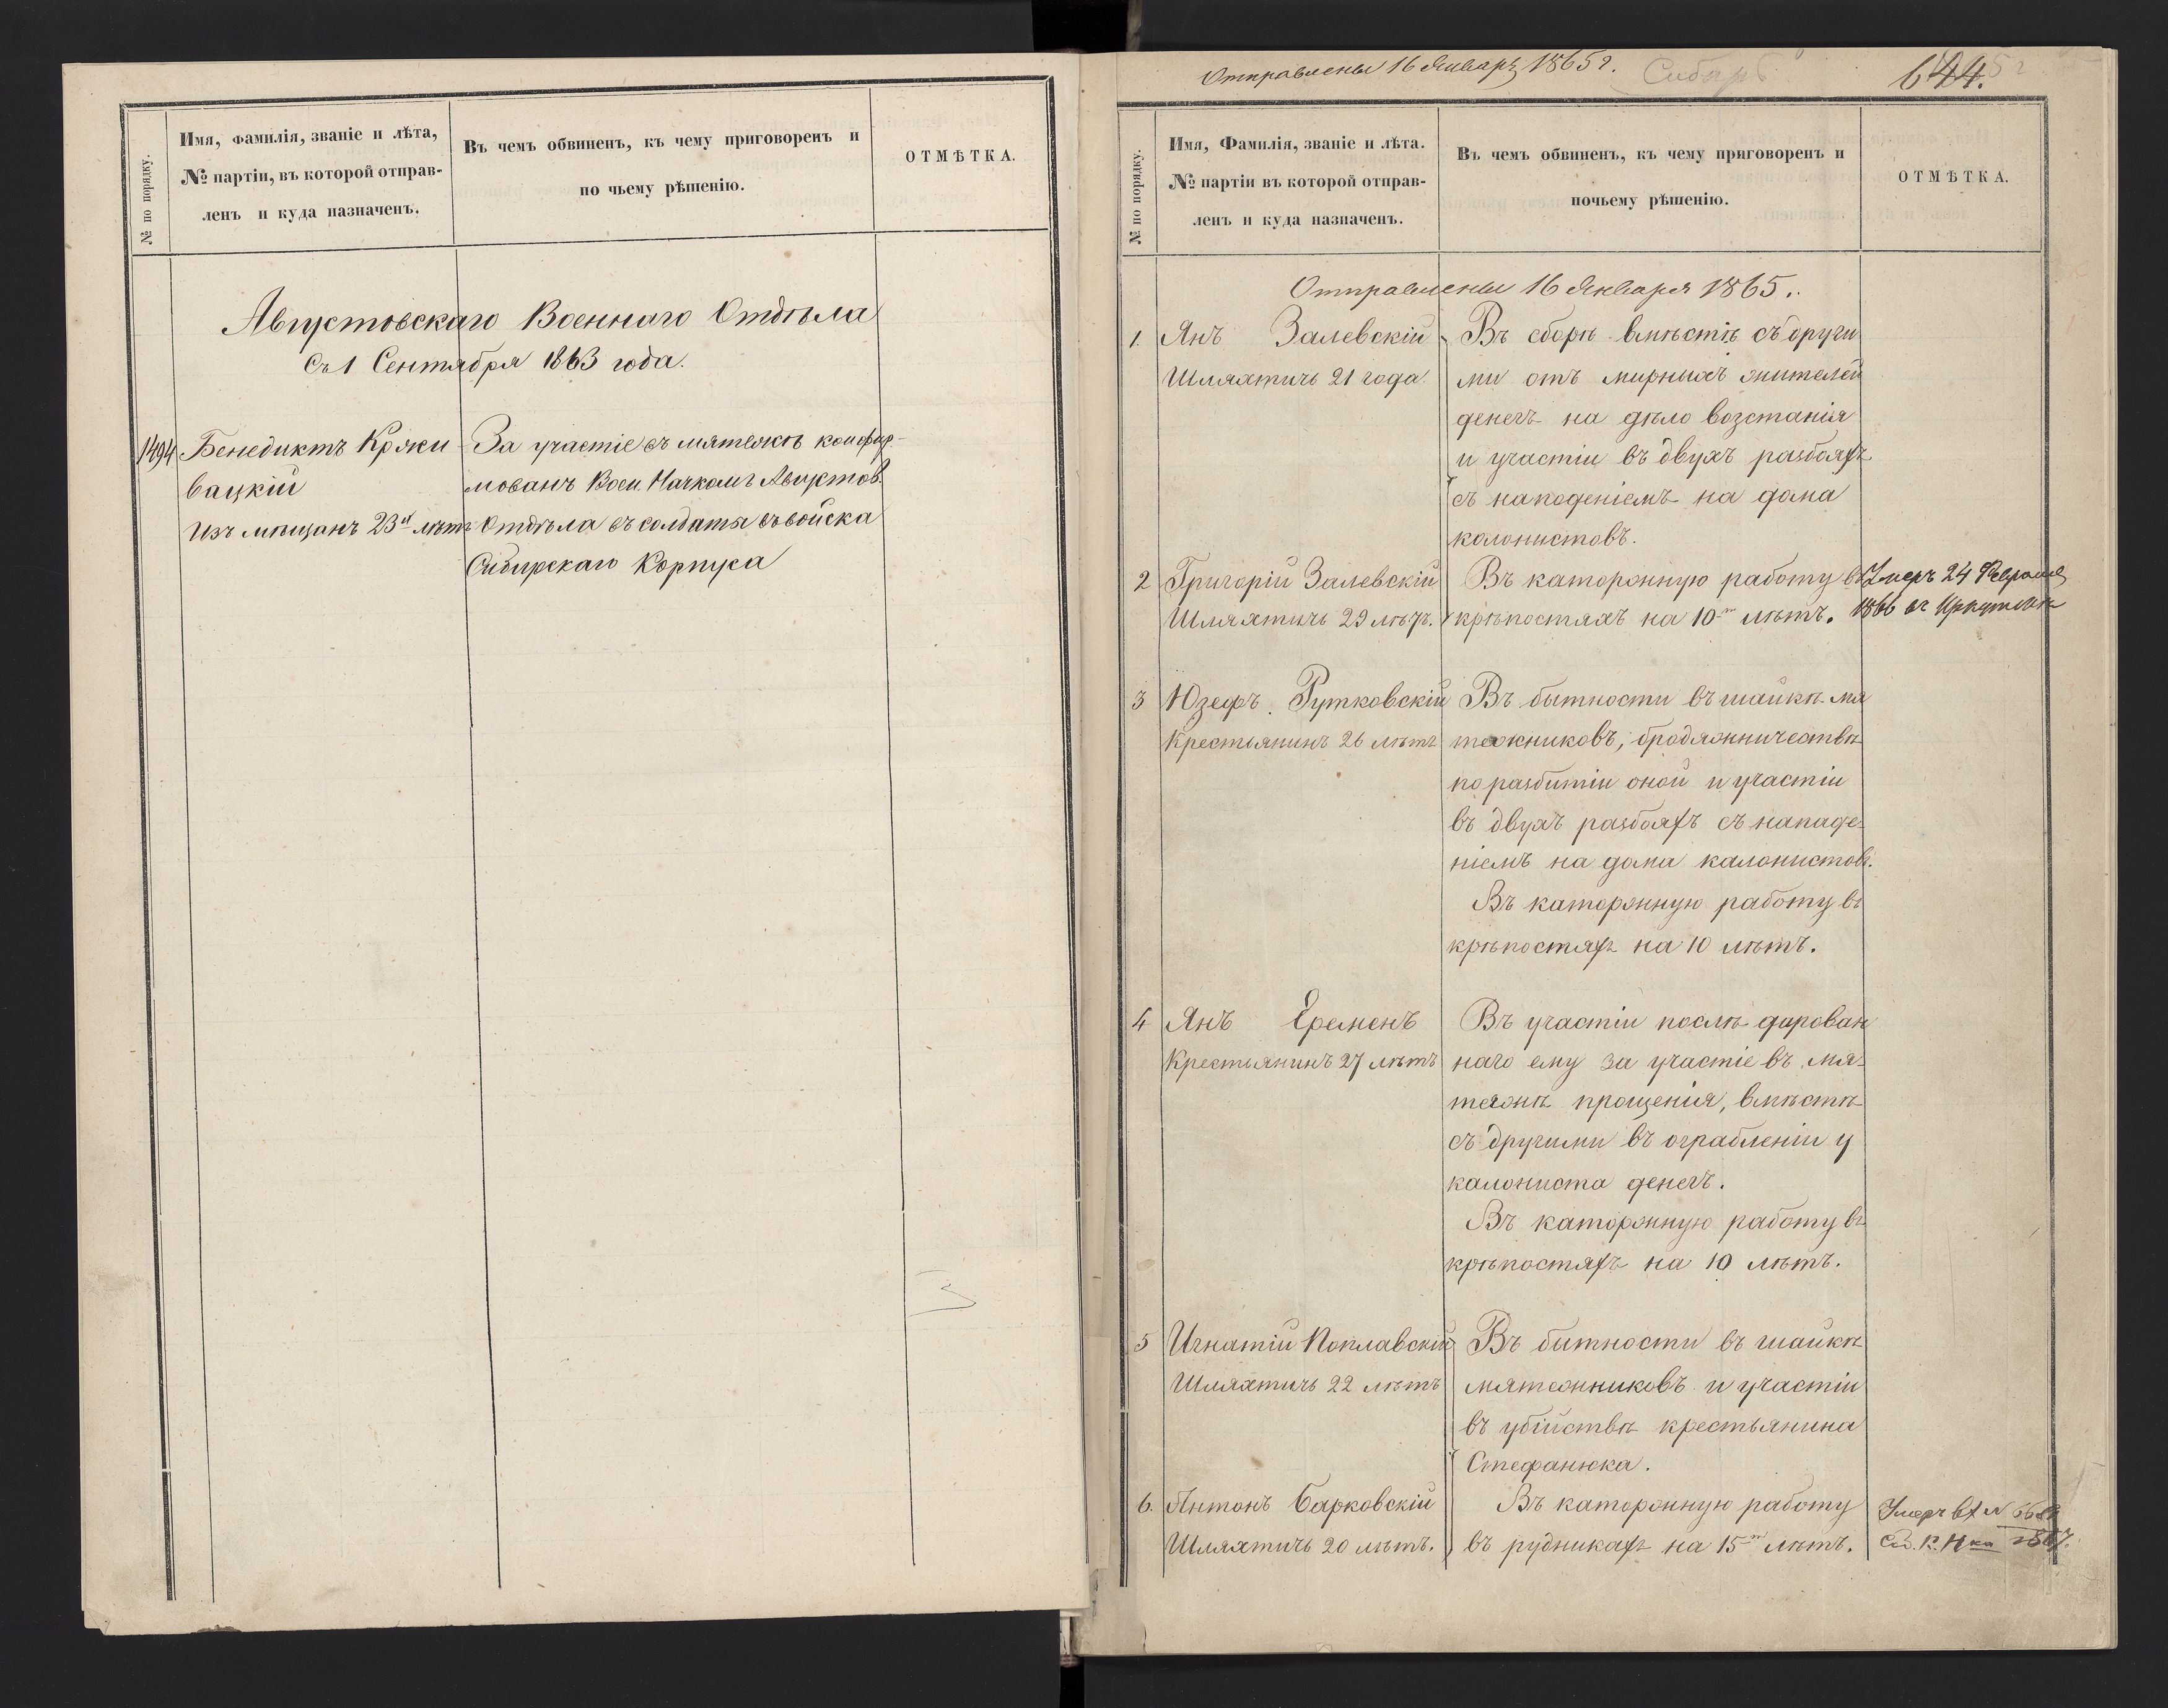 № по порядку.
Имя, фамилія, званіе и лѣта,
№ партіи, въ которой отправ-
ленъ и куда назначенъ.
Въ чемъ обвиненъ, къ чему приговоренъ и
по чьему рѣшенію.
ОТМѢТКА.
Августовскаго Военнаго Отдѣла
Съ 1 Сентября 1863 года.
1494
Бенедиктъ Кржи-
вацкій
Изъ мѣщанъ 23х лѣтъ
За участіе въ мятежѣ конфир-
мованъ Воен. Начкомъ Августов.
Отдѣла въ солдаты въ войска
Сибирскаго Корпуса
Отправлены 16 Январѣ 1865 г.
Сибирь
644.
№ по порядку.
Имя, Фамилія, званіе и лѣта.
№ партіи въ которой отправ-
ленъ и куда назначенъ.
Въ чемъ обвиненъ, къ чему приговоренъ и
почьему рѣшенію.
ОТМѢТКА.
Отправлены 16 Января 1865.
1.
Янъ Залевскій
Шляхтичъ 21 года
Въ сборѣ вмѣстѣ съ други
ми отъ мирныхъ жителей
денегъ на дѣло возстанія
и участіи въ двухъ разбояхъ
съ нападеніемъ на дома
колонистовъ.
2
Григорій Залевскій
Шляхтичъ 29 лѣтъ.
Въ каторжную работу въ
крѣпостяхъ на 10ть лѣтъ.
Умеръ 24 Февраля
1866 въ Иркутскѣ
3
Юзефъ Рутковскій
Крестьянинъ 26 лѣтъ
Въ бытности въ шайкѣ мя
тежниковъ, бродяжничествѣ
по разбитіи оной и участіи
въ двухъ разбояхъ съ нападе-
ніемъ на дома калонистов.
Въ каторжную работу въ
крѣпостяхъ на 10 лѣтъ.
4
Янъ Еременъ
Крестьянинъ 27 лѣтъ
Въ участіи послѣ дарован
наго ему за участіе въ мя-
тежѣ прощенія, вмѣстѣ
съ другими въ ограбленіи у
калониста денегъ.
Въ каторжную работу въ
крѣпостяхъ на 10 лѣтъ.
5
Игнатій Поплавскій
Шляхтичъ 22 лѣтъ
Въ бытности въ шайкѣ
мятежниковъ и участіи
въ убійствѣ крестьянина
Стефанюка.
6.
Антонъ Барковскій
Шляхтичъ 20 лѣтъ.
Въ каторжную работу
въ рудникахъ на 15ть лѣтъ.
Умеръ